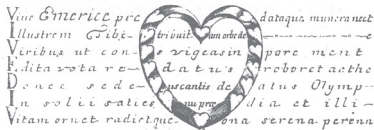 Vive Emerice pre dataque munera nect
Illustrem Tibi tribuit amor be de e
Viribus ut con s vige as in pore ment
Edita vota re datus roboret aethe
Donec sede us cantis de atus Olymp
In solii saties nu prae dia et illi
Vitam ornet radietque ona serena perenn